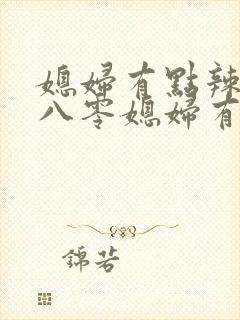 媳婦有點辣
八零媳婦有
錦若